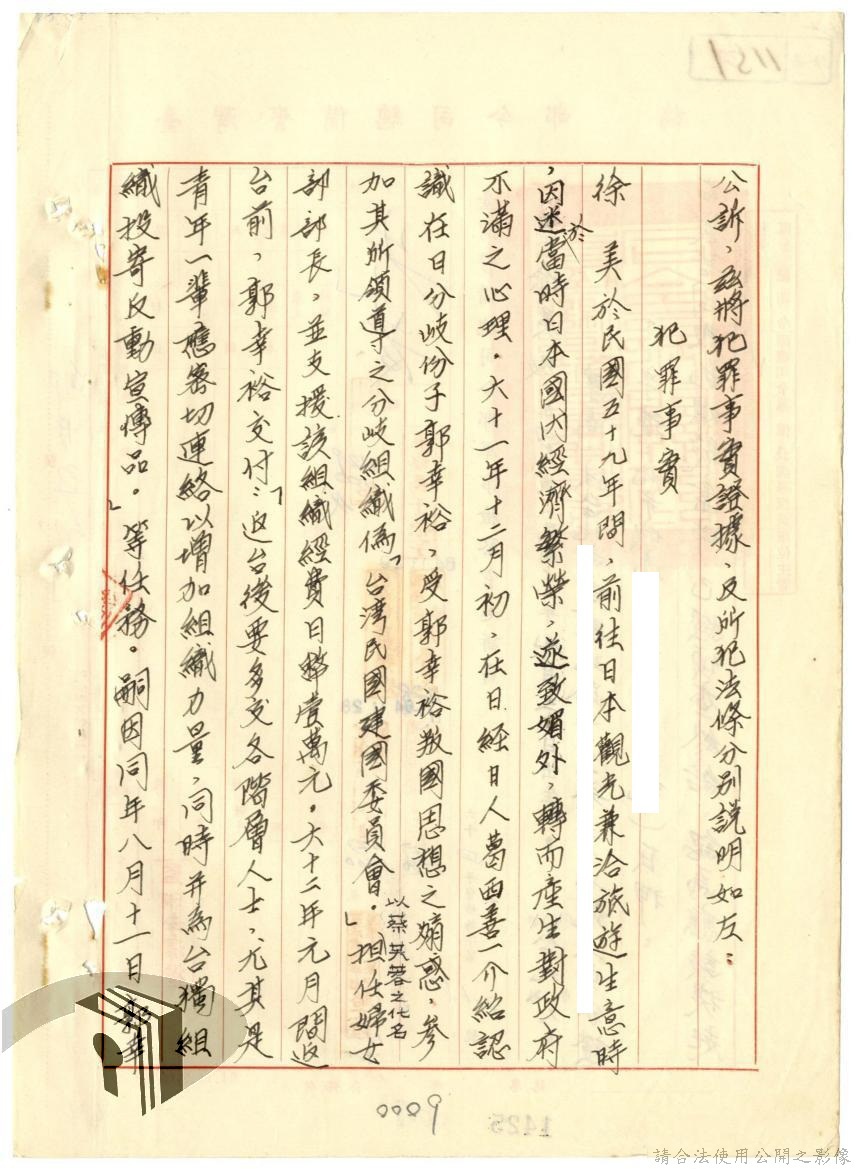 公訴，茲將犯罪事實證據，及所犯法條分別說明如左：
犯罪事實
徐 美於民國五十九年間，前往日本觀光兼洽旅遊生意時
，因迷於當時日本國內經濟繁榮，遂致媚外，轉而產生對政府
不滿之心理。六十一年十二月初，在日經日人葛西善一介紹認
識在日分歧份子郭幸裕，受郭幸裕叛國思想之煽惑，參
加其所領導之分歧組織偽「台湾民國建國委員會。」以蔡芙蓉之化名担任婦女
部部長，並支援該組織經費日幣壹萬元。六十二年元月間返
台前，郭幸裕交付：「返台後要多交各階層人士，尤其是
青年一輩應密切連絡以增加組織力量，同時并為台獨組
織投寄反動宣傳品。」等任務。嗣因同年八月十一日郭幸
9000
1425
1151
請合法使用公開之影像